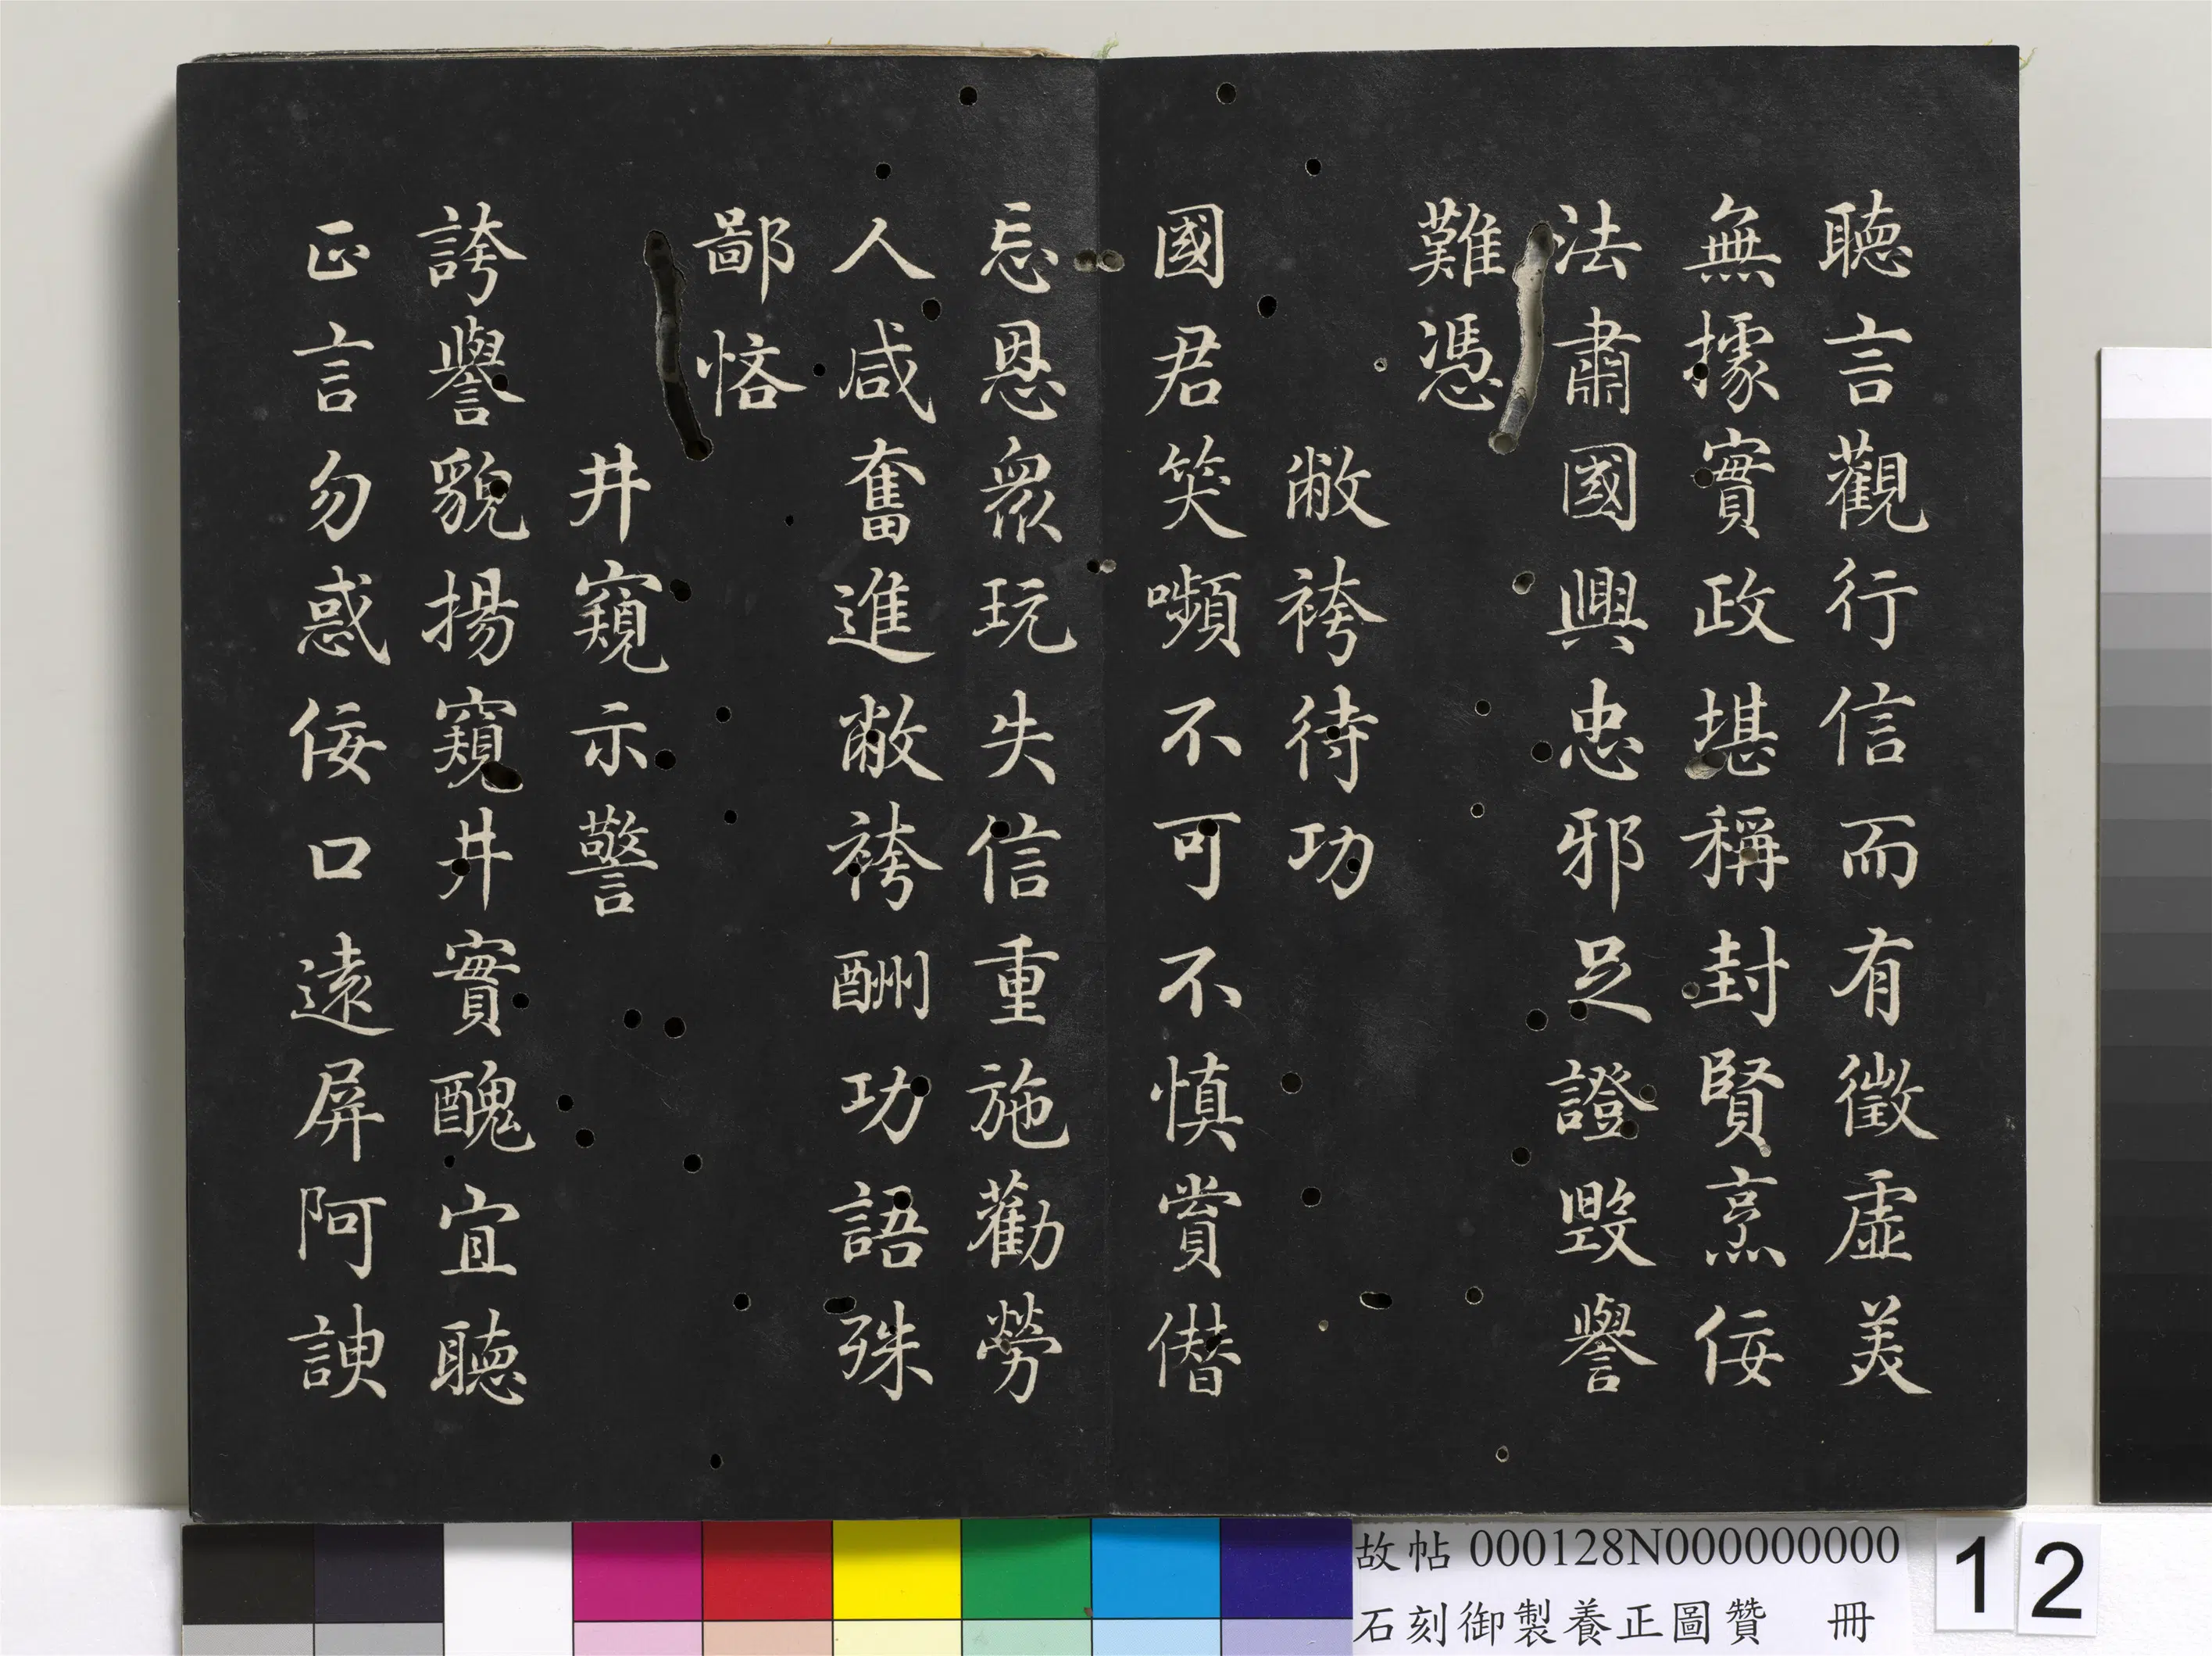 聽言觀行信而有徵虛美
無據實政堪稱封賢烹佞
法肅國興忠邪足證毀譽
難憑
敝袴待功
國君笑嚬不可不慎賞僭
忘恩衆玩失信重施勸勞
人咸奮進敝袴酬功語殊
鄙悋
井窺示警
誇譽貌揚窺井實醜宜聽
正言勿惑佞口遠屏阿諛
故帖 000128N000000000
石刻御製養正圖贊 冊
12